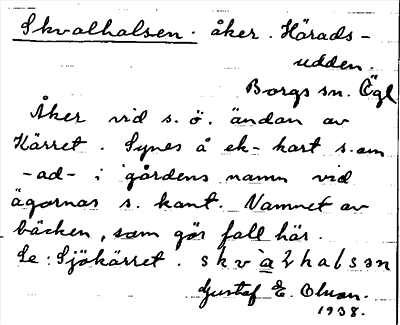 Skvalhalsen. åker. Härads-
udden.
Borgs sn. Ögl
Åker vid s. ö. ändan av
Kärret. Synes å ek-kart som
-ad- i gårdens namn vid
ägornas s. kant. Namnet av
bäcken, som gör fall här.
Se: Sjökärret. skvàlhalsən
Gustaf E. Olson.
1938.